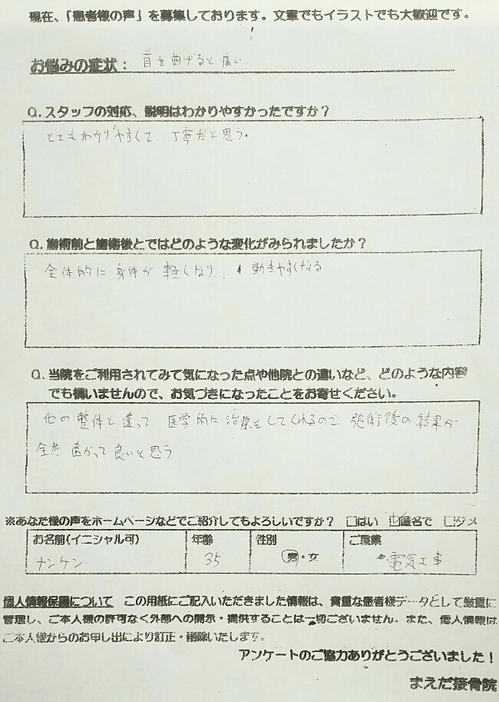 現在、「患者様の声」を募集しております。文章でもイラストでも大歓迎です。
お悩みの症状: 首を曲げると痛い
Q.スタッフの対応、説明はわかりやすかったですか?
とてもわかりやすくて、丁寧だと思う。
Q.施術前と施術後とではどのような変化がみられましたか?
全体的に身体が軽くなり、動きやすくなる
Q.当院をご利用されてみて気になった点や他院との違いなど、どのような内容
でも構いませんので、お気づきになったことをお寄せください。
他の整体と違って医学的に治療をしてくれるので、施術後の結果が
全然違がって良いと思う
※あなた様の声をホームページなどでご紹介してもよろしいですか? □はい ☑匿名で □ダメ
お名前(イニシャル可) 年齢 性別 ご職業
ナンケン 35 男・女 電気工事
個人情報保護について この用紙にご記入いただきました情報は、貴重な患者様データとして厳重に
管理し、ご本人様の許可なく外部への開示・提供することは一切ございません。また、個人情報は
ご本人様からのお申し出により訂正・削除いたします。
アンケートのご協力ありがとうございました!
まえだ接骨院